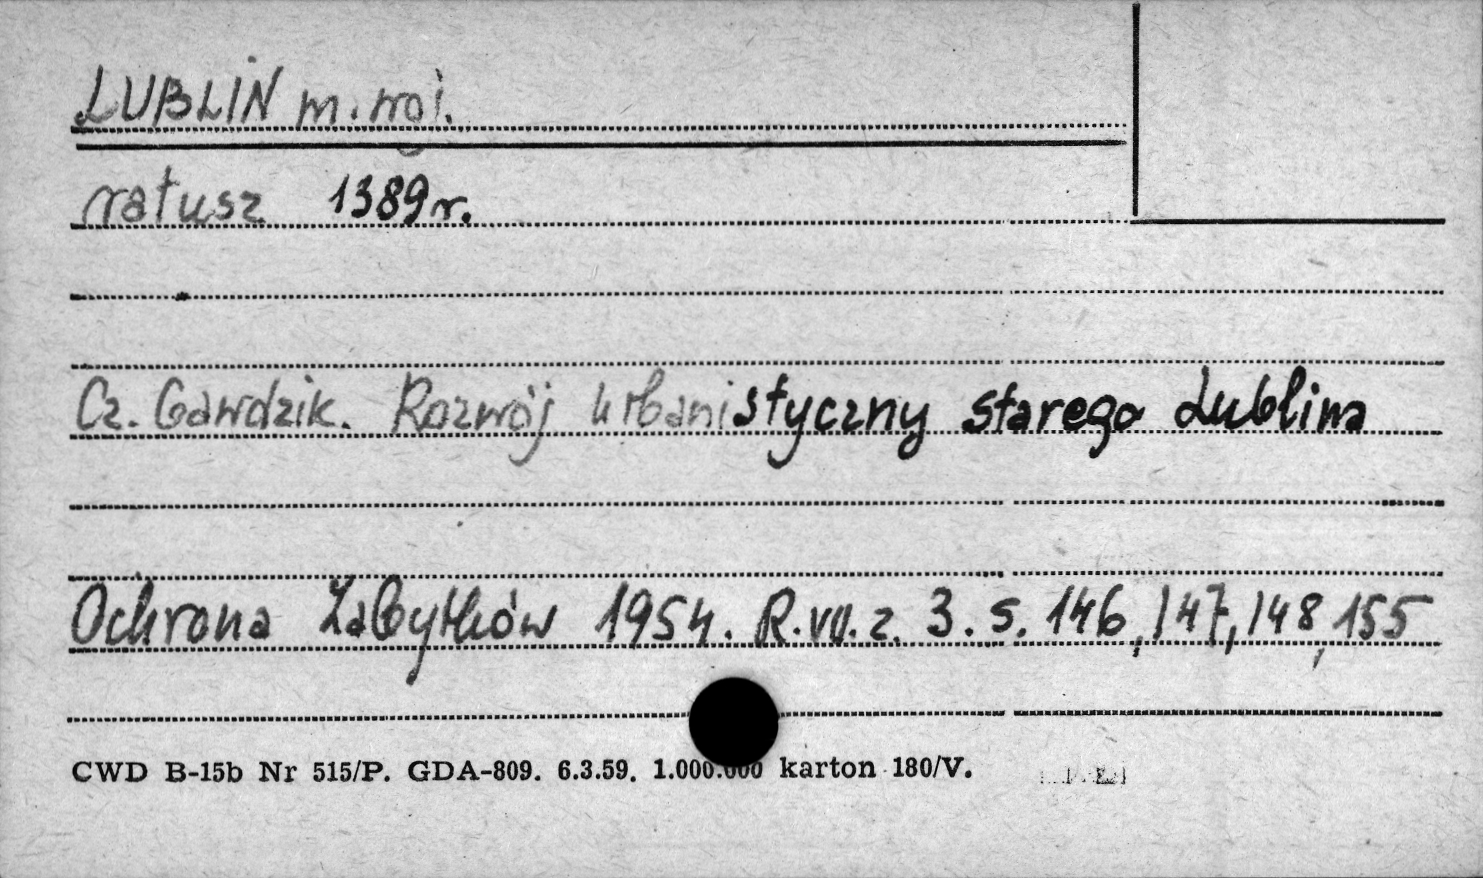 LUBLIN m. woj.
ratusz 1389 r.
Cz. Gawdzik. Rozwój urbanistyczny starego Lublina
Ochrona Zabytków 1954. R. VII. z. 3. s. 146, 147, 148, 155
CWD B-15b Nr 515/P. GDA-809. 6.3.59. 1.000.000 karton 180/V.